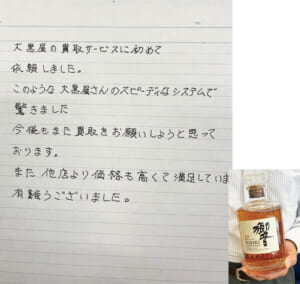 大黒屋の買取サービスに初めて
依頼しました。
このような大黒屋さんのスピーディなシステムで
驚きました
今後もまた買取をお願いしようと思って
おります。
また、他店より価格も高くて満足していま
有難うございました。
響
HIBIKI